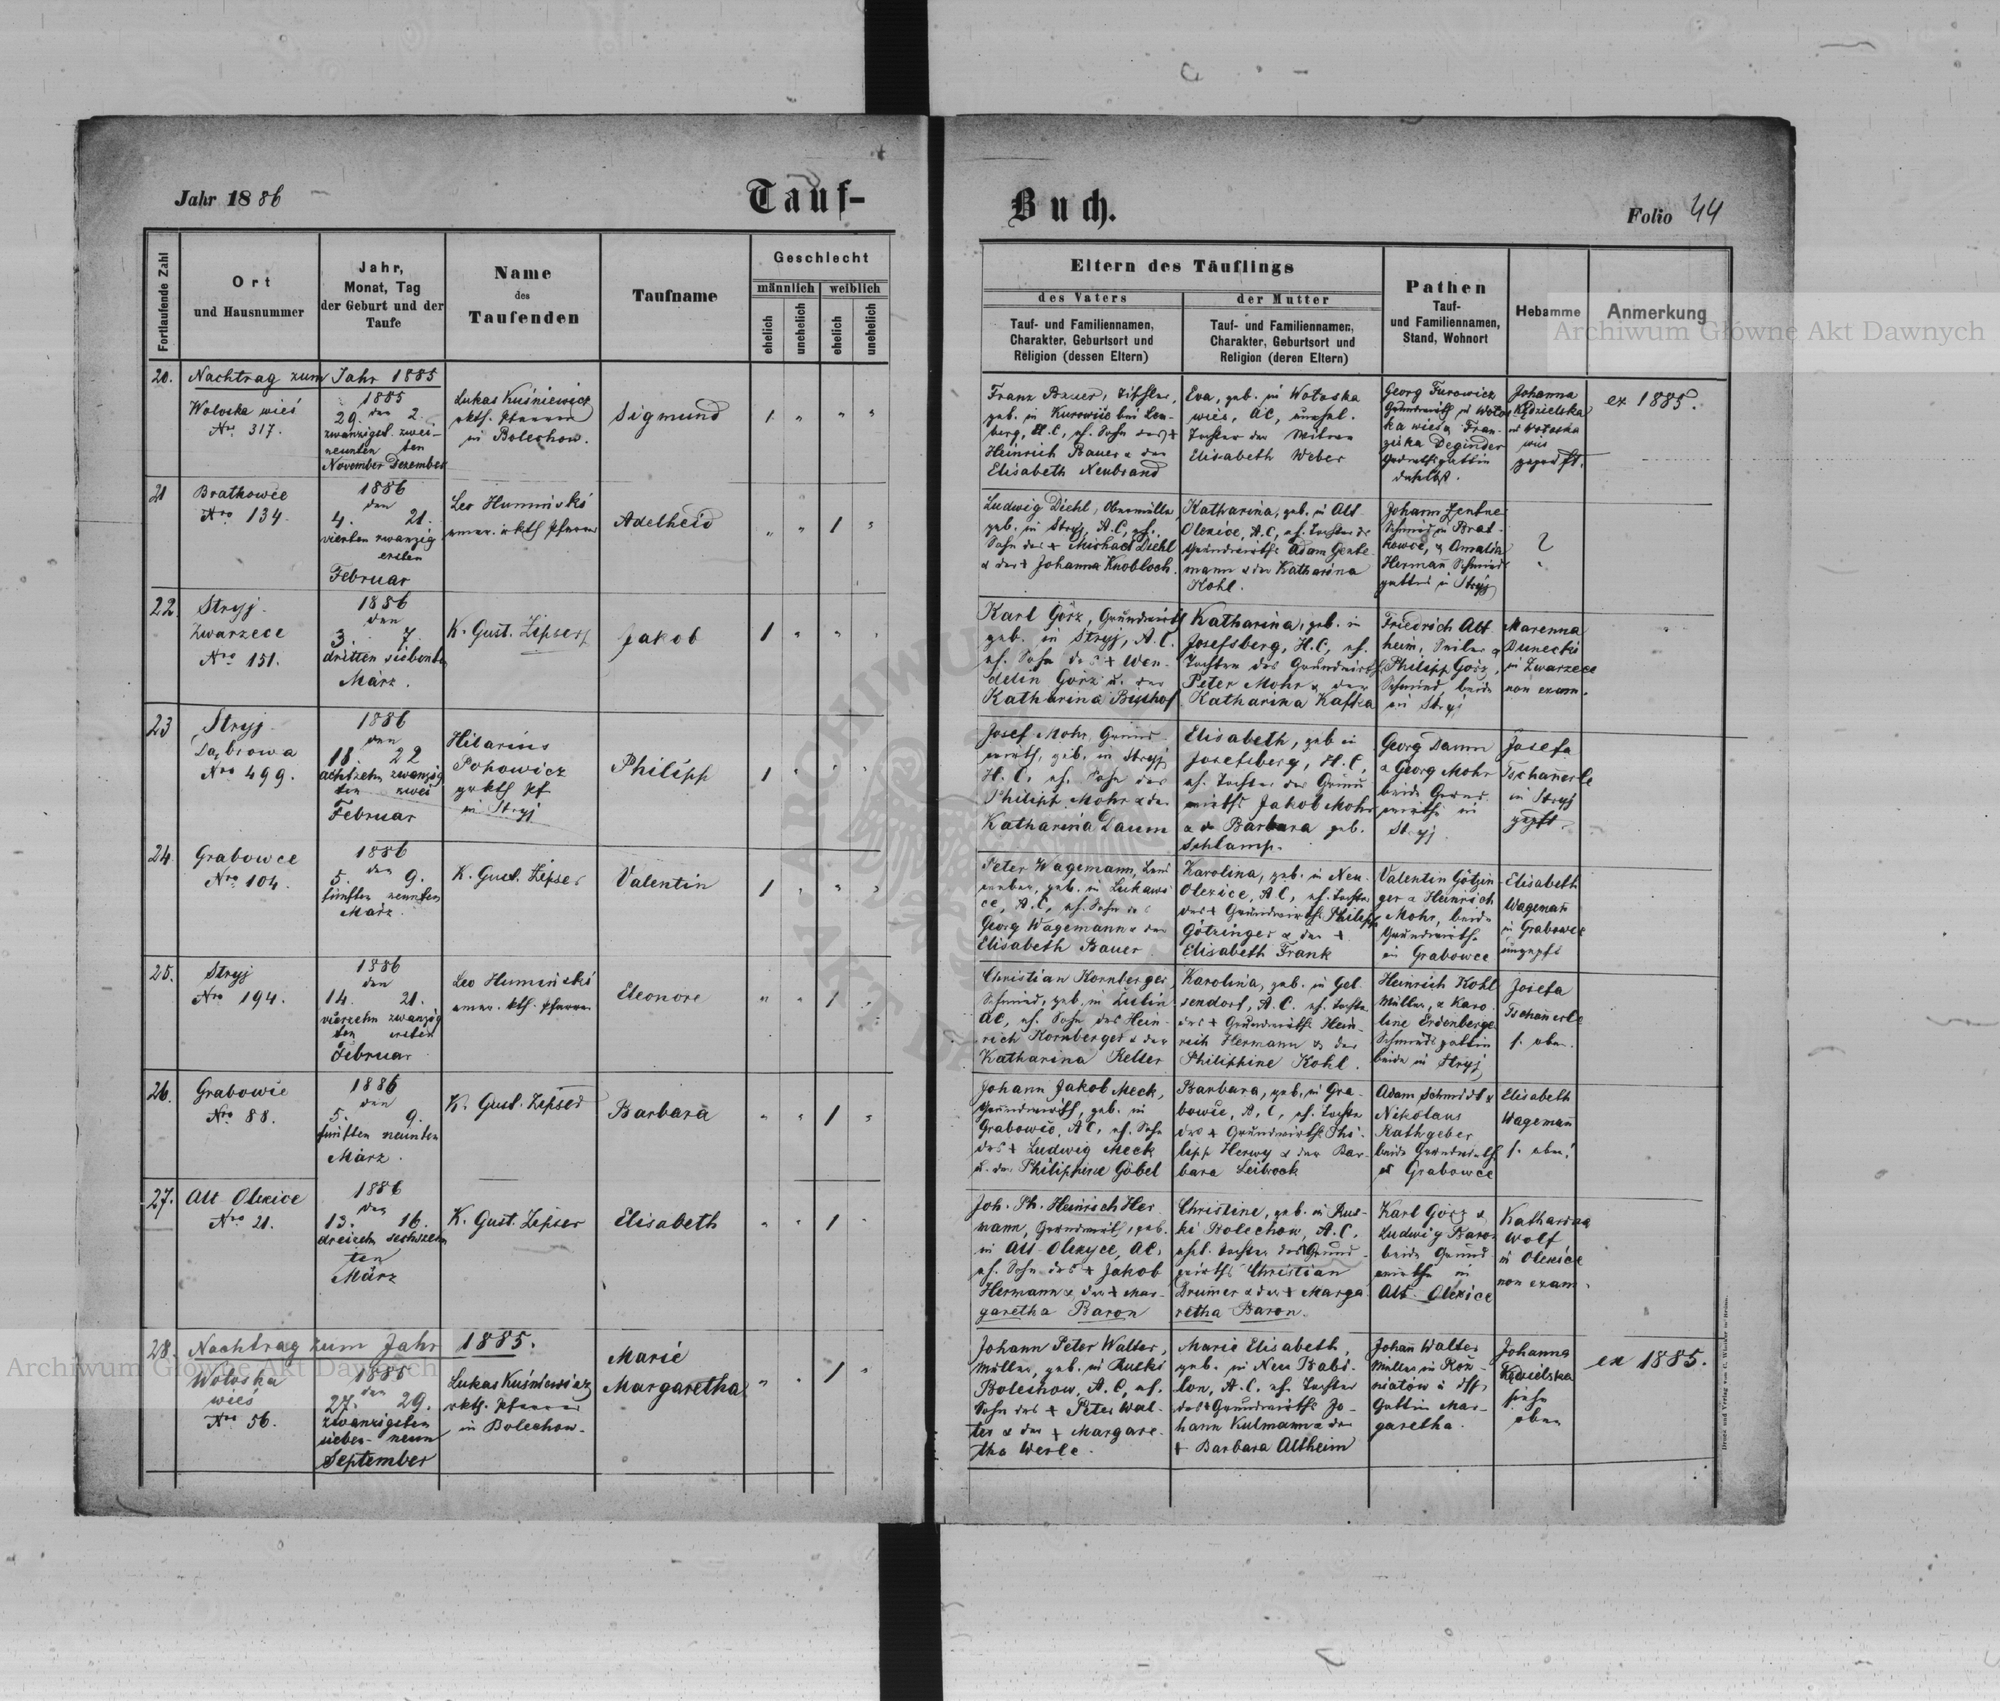 Jahr 1886
Tauf-
Buch.
Folio 44
Fortlaufende Zahl
Ort
und Hausnummer
Jahr,
Monat, Tag
der Geburt und der
Taufe
Name
des
Taufenden
Taufname
Geschlecht
männlich weiblich
ehelich
unehelich
ehelich
unehelich
Eltern des Täuflings
des Vaters
der Mutter
Tauf- und Familiennamen,
Charakter, Geburtsort und
Religion (dessen Eltern)
Tauf- und Familiennamen,
Charakter, Geburtsort und
Religion (deren Eltern)
Pathen
Tauf-
und Familiennamen,
Stand, Wohnort
Hebamme
Anmerkung
Archiwum Główne Akt Dawnych
20.
Nachtrag zum Jahr 1885
Woloska wieś
Nro. 317.
1885
den
29. 2.
zwanzigst. zwei-
neunten ten
November Dezember
Lukas Kuśniewicz
rkth. Pfarrer
in Bolechow.
Sigmund
1 " " "
Franz Bauer, Tischler,
geb. in Kurowice bei Lem-
berg, H.C, eh. Sohn des +
Heinrich Bauer & der
Elisabeth Neubrand
Eva, geb. in Woloska
wies, AC, unehel.
Tochter der Witwe
Elisabeth Weber
Georg Turowicz
Grundwirth in Wolos
ka wies & Fran-
ziska Deginder
daselbst.
Johanna
Kędzielska
in Woloska
wies
geprüft.
ex 1885.
21
Bratkowce
Nro 134.
1886
den
4. 21.
vierten zwanzig
ersten
Februar
Leo Humiński
emer. rkth Pfarrer
Adelheid
" " 1 "
Ludwig Diehl, Obermüller
geb. in Stryj, A.C, eh.
Sohn des + Michael Diehl
& der + Johanna Knobloch.
Katharina, geb. in Alt
Olexice, A.C, eh. Tochter des
Grundwirths Adam Gente-
mann & der Katharina
Kohl.
Johann Zentner
Schmid in Brat-
kowce, & Amalia
Hermañ Schmied
gattin in Stryj
?
22.
Stryj
Zwarzece
Nro 151.
1886
den
3. 7.
dritten siebenten
März.
K. Gust. Zipser
Jakob
1 " " "
Karl Görz, Grundwirth
geb. in Stryj, A.C.
eh. Sohn des + Wen-
delin Görz u. der
Katharina Bischof
Katharina, geb. in
Josefsberg, H.C, eh.
Tochter des Grundwirths
Peter Mohr & der
Katharina Kafka
Friedrich Alt-
heim, Seiler &
Philipp Görz,
Schmied, beide
in Stryj
Marenna
Dunecki
in Zwarzece
non exam.
23
Stryj
Dąbrowa
Nro 499.
1886
den
18 22
achtzehn zwanzig
ten zwei
Februar
Hilarius
Pohowicz
grkth Pf
in Stryj
Philipp
1 " " "
Josef Mohr, Grund-
wirth, geb. in Stryj
H.C, eh. Sohn des
Philipp Mohr & der
Katharina Daum
Elisabeth, geb in
Josefsberg, H.C,
eh. Tochter des Grund
wirths Jakob Mohr
& der Barbara geb.
Schlamp.
Georg Daum
& Georg Mohr
beide Grund-
wirthe in
Stryj.
Josefa
Tschañerle
in Stryj
gepft.
24.
Grabowce
Nro 104.
1886
den
5. 9.
fünften neunten
März.
K. Gust. Zipser
Valentin
1 " " "
Peter Wagemann, Lein
weber, geb. in Lukawi
ce, A.C, eh. Sohn des
Georg Wagemann & der
Elisabeth Bauer
Karolina, geb. in Neu-
Olexice, A.C, eh. Tochter
des + Grundwirths Philipp
Götzinger & der +
Elisabeth Frank
Valentin Götzin-
ger & Heinrich
Mohr, beide
Grundwirthe
in Grabowce
Elisabeth
Wagemañ
in Grabowce
ungepft
25.
Stryj
Nro 194.
1886
den
14. 21.
vierzehn zwanzig
ten ersten
Februar
Leo Humiński
emer. kth. Pfarrer
Eleonore
" " 1 "
Christian Kornberger
Schmied, geb, in
AC, eh. Sohn des Hein-
rich Kornberger & der
Katharina Keller
Karolina, geb. in Gel
sendorf, A.C. eh. Tochter
des + Grundwirths Hein-
rich Hermann & der
Philippine Kohl.
Heinrich Kohl
Müller, & Karo
line Erdenberger
Schmiedsgattin
beide in Stryj
Josefa
Tschañerle
s. oben.
26.
Grabowce
Nro 88.
1886
den
5. 9.
fünften neunten
März.
K. Gust. Zipser
Barbara
" " 1 "
Johann Jakob Meck,
Grundwirth, geb. in
Grabowce, AC, eh. Sohn
des + Ludwig Meck
u. der Philippine Göbel
Barbara, geb. in Gra-
bowce, A.C, eh. Tochter
des + Grundwirths Phi-
lipp Herwy & der Bar-
bara Leibrock
Adam Schmidt &
Nikolaus
Rathgeber
beide Grundwirthe
in Grabowce
Elisabeth
Wagemañ
s. oben!
27.
Alt Olexice
Nro 21.
1886
den
13. 16.
dreizehn sechszehn
ten
März
K. Gust. Zipser
Elisabeth
" " 1 "
Joh. Ph. Heinrich Her
mann, Grundwirth, geb.
in Alt Olexyce, AC,
eh. Sohn des + Jakob
Hermann & der + Mar-
garetha Baron
Christine, geb. in Rus-
ki Bolechow, A.C.
ehl. Tochter des Grund-
wirths Christian
Drumer & der + Marga
retha Baron.
Karl Görz &
Ludwig Baron
beide Grund-
wirthe in
Alt Olexice
Katharina
Wolf
in Olexice
non exam.
28.
Nachtrag zum Jahr 1885.
Woloska
wieś
Nro 56.
1885
den
27. 29.
zwanzigsten
sieben- neun
September
Lukas Kuśniewicz
rkth. Pfarrer
in Bolechow.
Marie
Margaretha
" " 1 "
Johann Peter Walter,
Müller, geb. in Ruski
Bolechow, A.C, eh.
Sohn des + Peter Wal-
ter & der + Margare-
tha Werle.
Marie Elisabeth,
geb. in Neu Babi-
lon, A.C. eh. Tochter
des + Grundwirths Jo-
hann Kulmann & der
+ Barbara Altheim
Johañ Walter
Müller in Roz-
niatów & dessen
Gattin Mar-
garetha.
Johanna
Kędzielska
siehe
oben
ex 1885.
Archiwum Główne Akt Dawnych